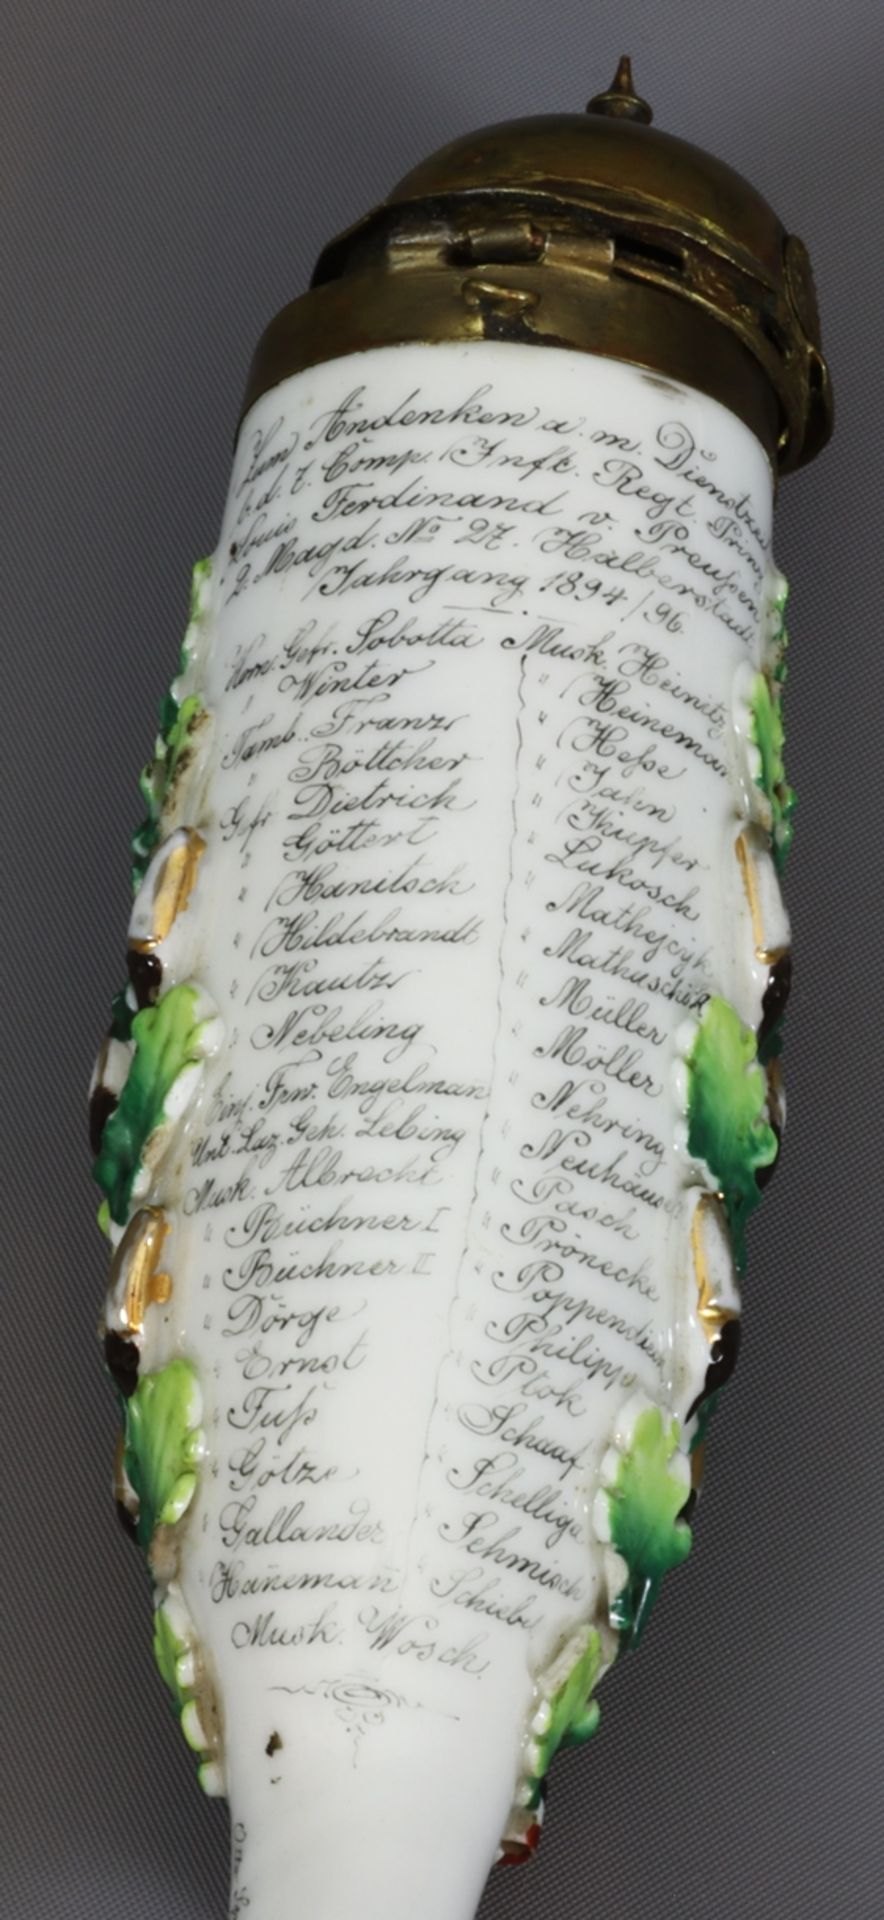 Zum Andenken a. m. Dienstzeit
b. d. 7. Comp. Inft. Regt. Prinz
Louis Ferdinand v. Preußen
2. Magd. No 27. Halberstadt
Jahrgang 1894/96.
Horn. Gefr. Sobotta
" Winter
Tamb. Franz
" Böttcher
Gefr Dietrich
" Göttert
" Hanitsch
" Hildebrandt
" Kautz
" Nebeling
Einj. Frw. Engelman
Unt. Laz. Geh. Lebing
Musk. Albrecht
" Büchner I
" Büchner II
" Dörge
" Ernst
" Fuß
" Götze
" Gallander
" Hanemañ
Musk. Heinitz
" Heineman
" Heße
" Jahn
" Kupfer
" Lukosch
" Mathejcyk
" Mathuschik
" Müller
" Möller
" Nehring
" Neuhäuser
" Pasch
" Prönecke
" Poppendiek
" Philipp
" Ptok
" Schaaf
" Schellige
" Schmisch
" Schiebe
Musk. Wosch.
Otto